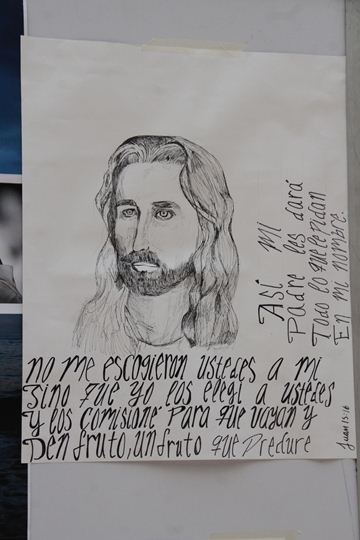 No me escogieron ustedes a mi
Sino que yo los elegí a ustedes
Y los comisioné para que vayan y
Den fruto, un fruto que Perdure
Así mi
Padre les dará
Todo lo que le pidan
En mi nombre.
Juan 15:16